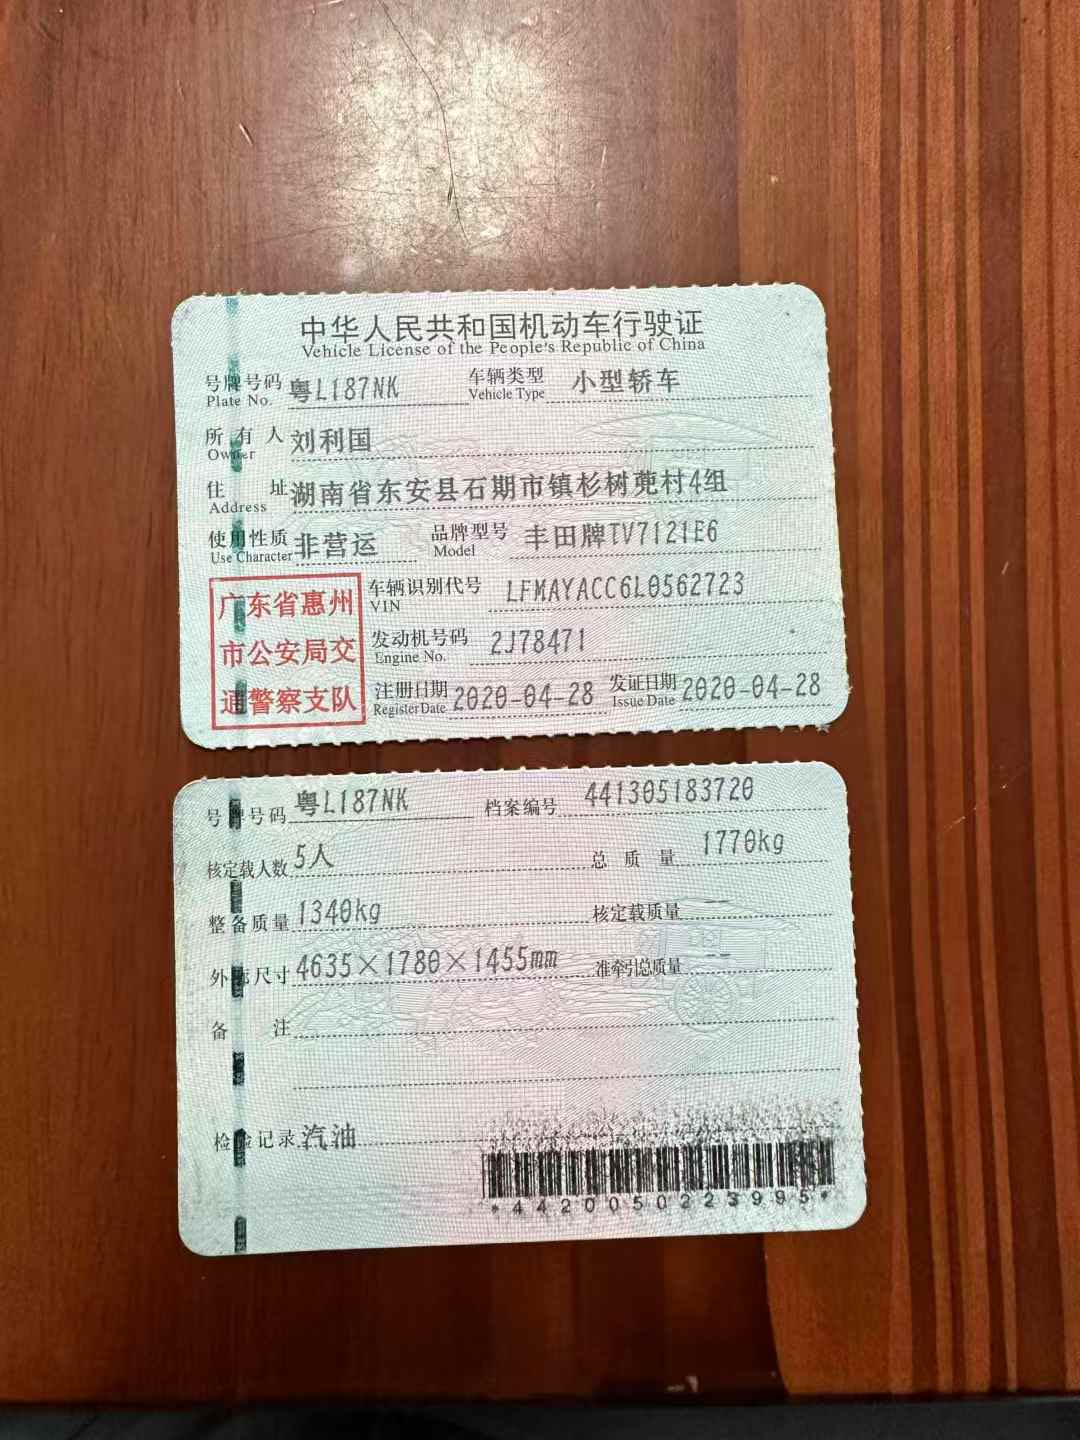 中华人民共和国机动车行驶证
Vehicle License of the People's Republic of China
号牌号码 粤L187NK 车辆类型 小型轿车
Plate No. Vehicle Type
所有人 刘利国
Owner
住址 湖南省东安县石期市镇杉树蔸村4组
Address
使用性质 非营运 品牌型号 丰田牌TV7121E6
Use Character Model
广东省惠州
市公安局交
通警察支队
车辆识别代号 LFMAYACC6L0562723
VIN
发动机号码 2J78471
Engine No.
注册日期 2020-04-28 发证日期 2020-04-28
Register Date Issue Date
号牌号码 粤L187NK 档案编号 441305183720
核定载人数 5人 总质量 1770kg
整备质量 1340kg 核定载质量 --
外廓尺寸 4635×1780×1455mm 准牵引总质量 --
备注
检验记录 汽油
*4420050223995*